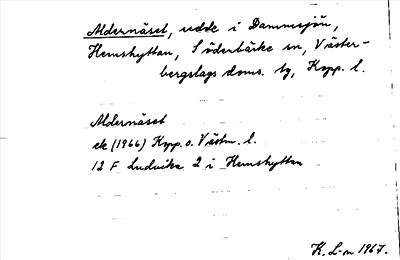 Aldernäset, udde i Dammsjön,
Hemshyttan, Söderbärke sn, Väster-
bergslags doms. tg, Kopp. l.
Aldernäset
ek (1966) Kopp. o. Västm. l.
12 F Ludvika 2 i Hemshyttan
K. L-m 1967.